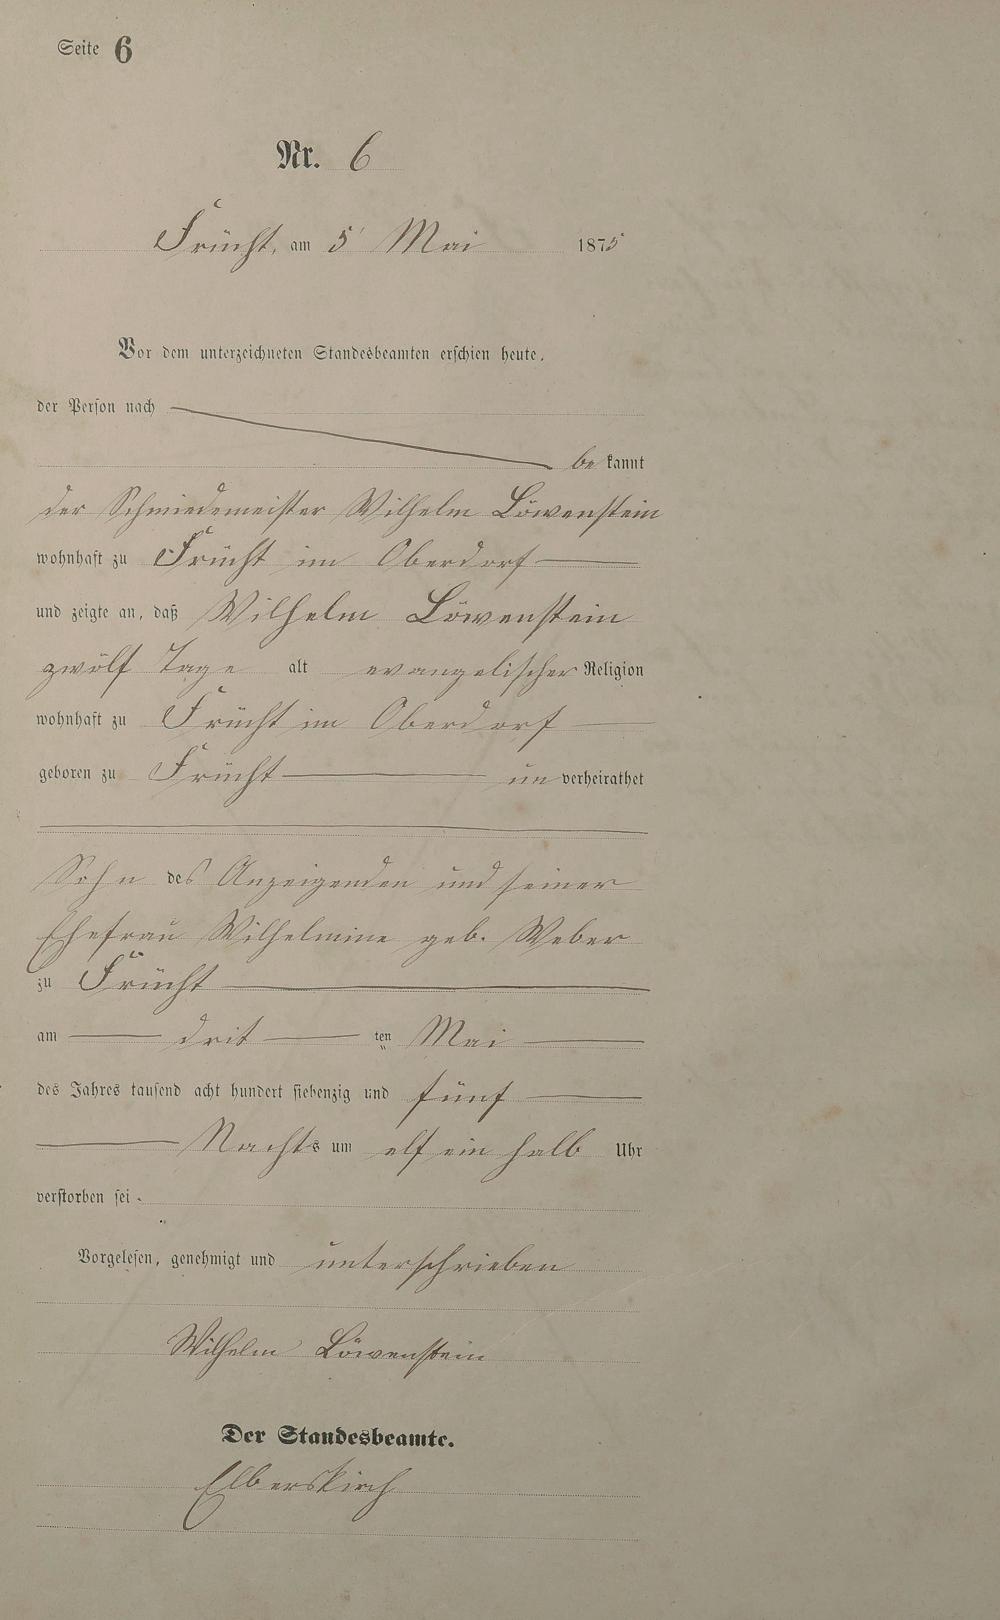 Seite 6
Nr. 6
Frücht, am 5 Mai 1875
Vor dem unterzeichneten Standesbeamten erschien heute,
der Person nach
be kannt
der Schmiedemeister Wilhelm Löwenstein
wohnhaft zu Frücht im Oberdorf
und zeigte an, daß Wilhelm Löwenstein
zwölf Tage alt evangelischer Religion
wohnhaft zu Frücht im Oberdorf
geboren zu Frücht un verheirathet
Sohn des Anzeigenden und seiner
Ehefrau Wilhelmine geb. Weber
zu Frücht
am drit ten Mai
des Jahres tausend acht hundert siebenzig und fünf
Nachts um elf ein halb Uhr
verstorben sei.
Vorgelesen, genehmigt und unterschrieben
Wilhelm Löwenstein
Der Standesbeamte.
Elberskirch